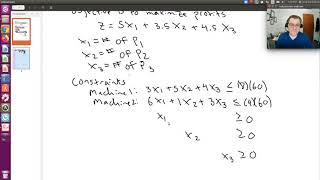 objective is to maximize profits
Z = 5x₁ + 3.5x₂ + 4.5x₃
x₁ = # of P₁
x₂ = # of P₂
x₃ = # of P₃
Constraints
Machine 1: 3x₁ + 5x₂ + 4x₃ ≤ (9)(60)
Machine 2: 6x₁ + 1x₂ + 3x₃ ≤ (9)(60)
x₁ ≥ 0
x₂ ≥ 0
x₃ ≥ 0